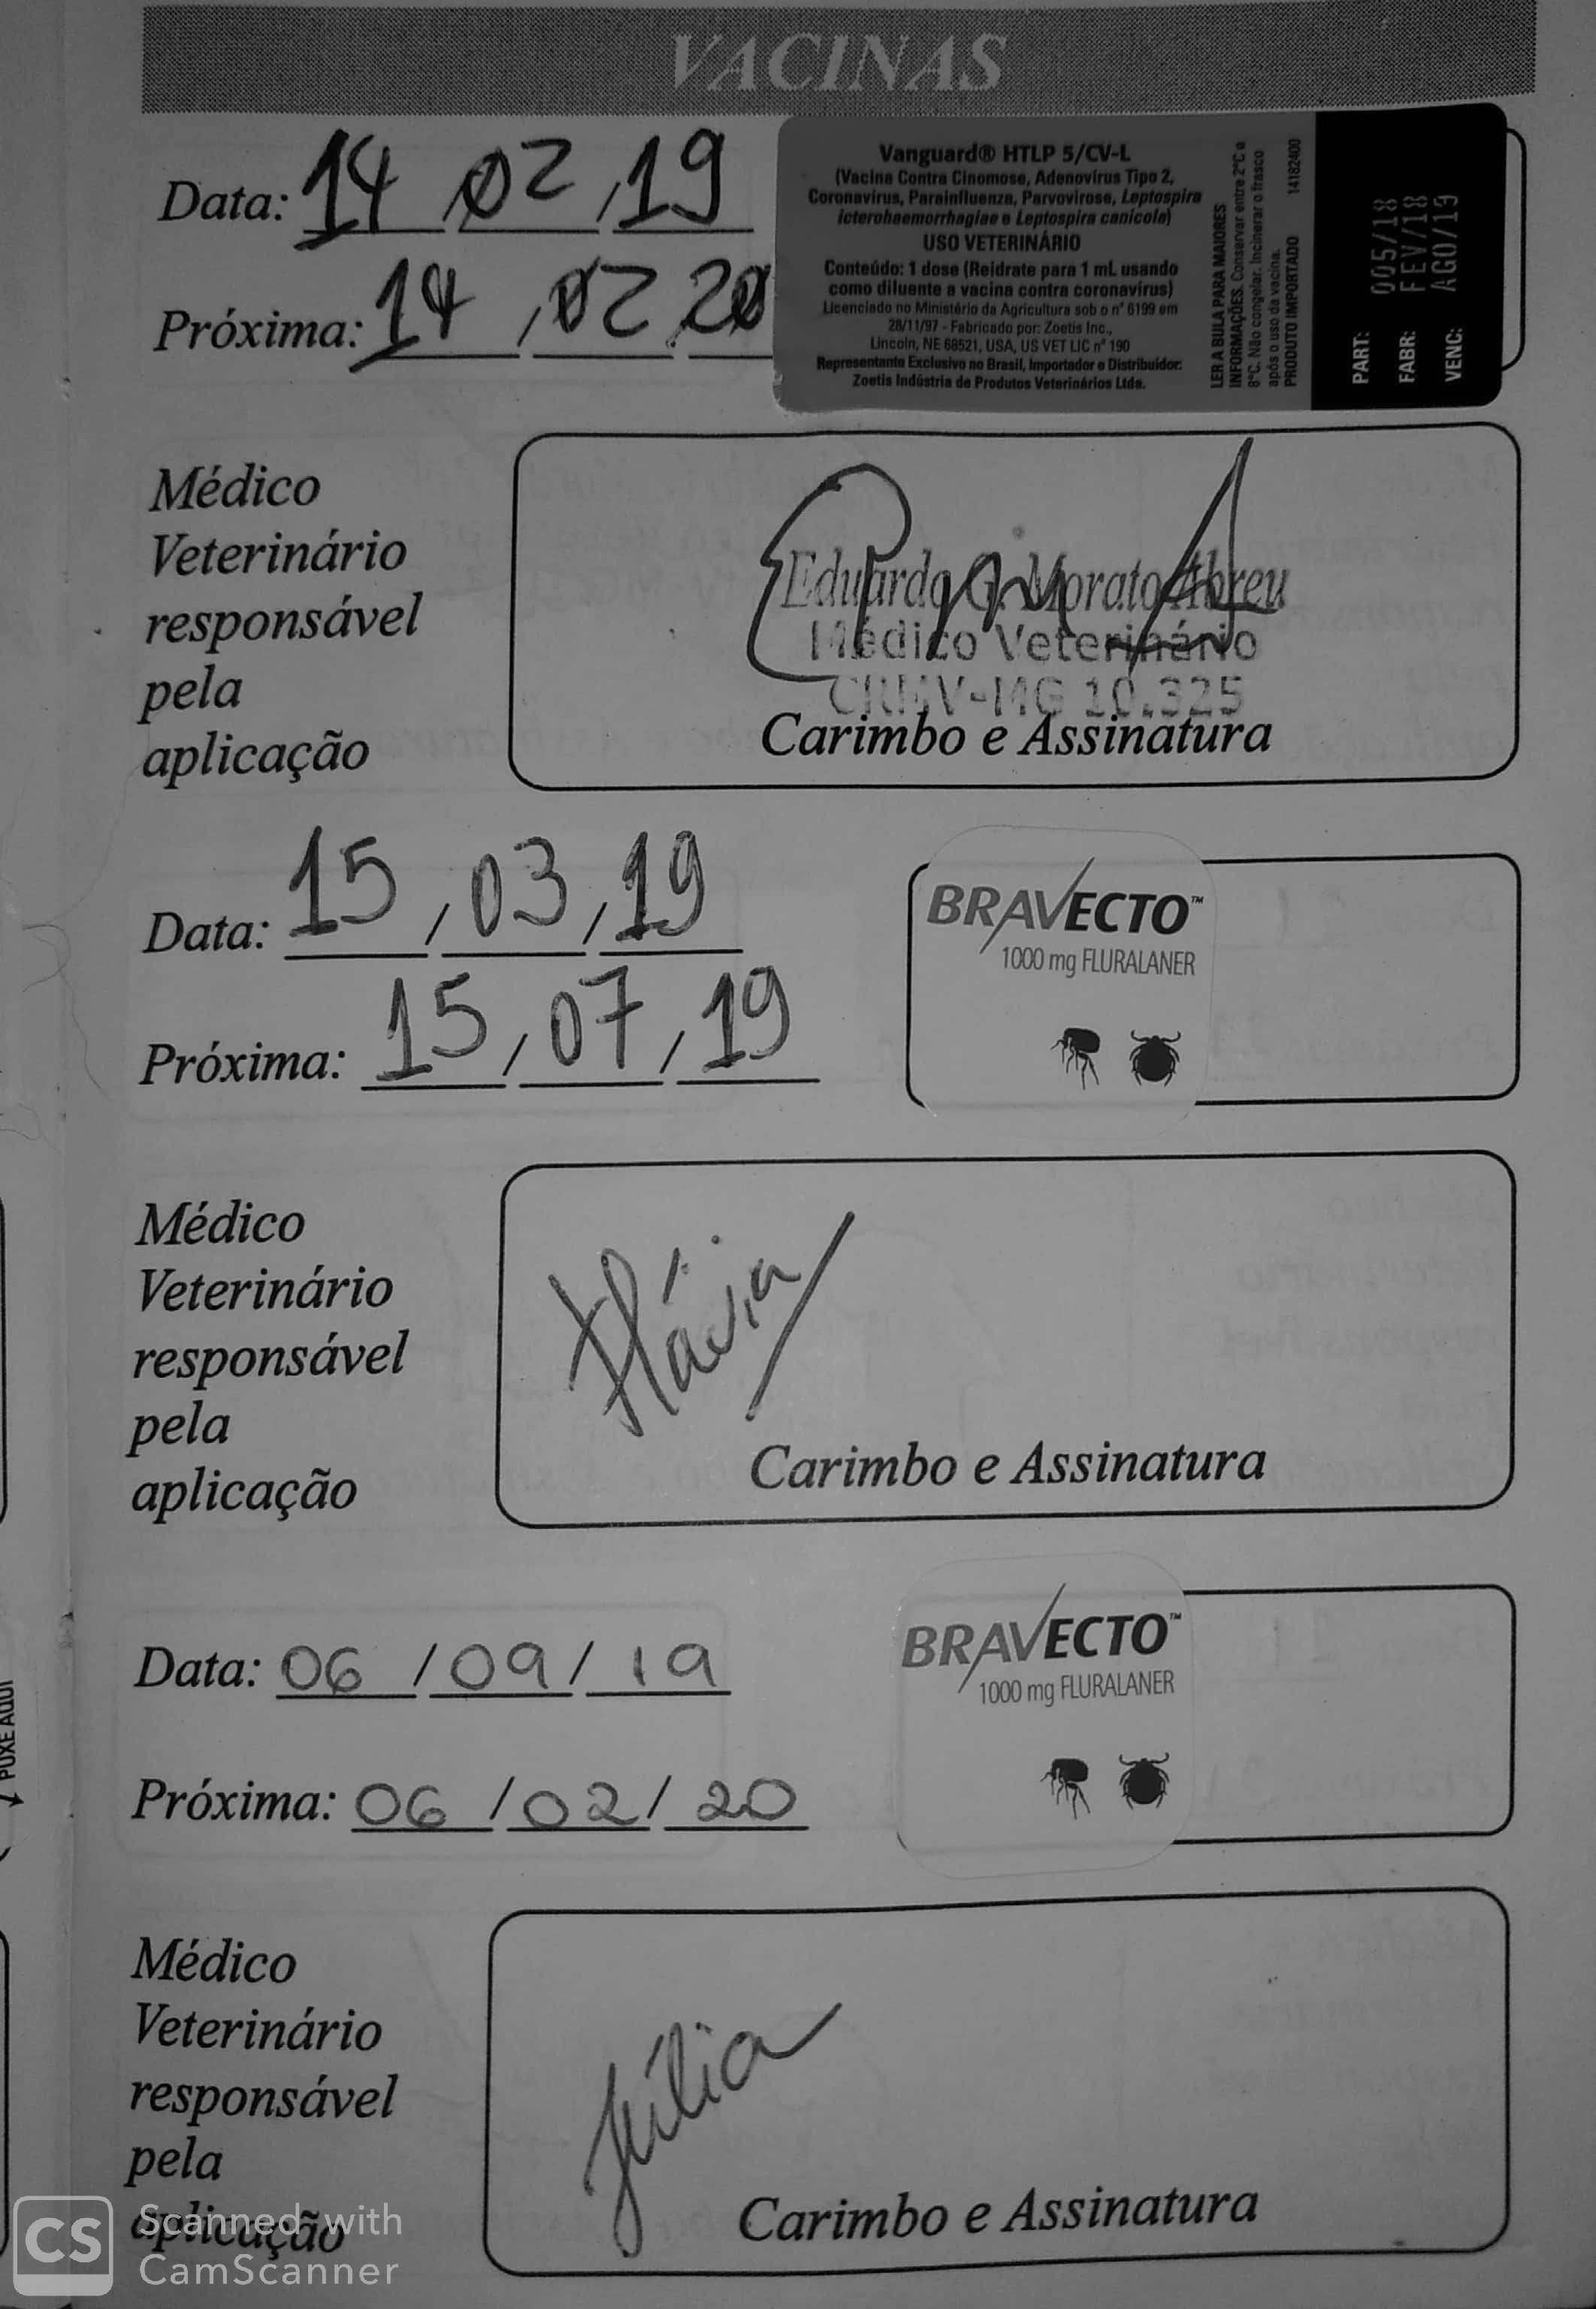 VACINAS
Data: 14 / 02 / 19
Próxima: 14 / 02 20
Vanguard® HTLP 5/CV-L
(Vacina Contra Cinomose, Adenovirus Tipo 2,
Coronavirus, Parainfluenza, Parvovirose, Leptospira
icterohaemorrhagiae e Leptospira canicola)
USO VETERINÁRIO
Conteúdo: 1 dose (Reidrate para 1 mL usando
como diluente a vacina contra coronavírus)
Licenciado no Ministério da Agricultura sob o nº 6199 em
28/11/97 - Fabricado por: Zoetis Inc.,
Lincoln, NE 68521, USA, US VET LIC nº 190
Representante Exclusivo no Brasil, Importador e Distribuidor:
Zoetis Indústria de Produtos Veterinários Ltda.
LER A BULA PARA MAIORES
INFORMAÇÕES. Conservar entre 2°C e
8°C. Não congelar. Incinerar o frasco
após o uso da vacina.
PRODUTO IMPORTADO 14182400
PART: 005/18
FABR: FEV/18
VENC: AGO/19
Médico
Veterinário
responsável
pela
aplicação
Eduardo G. Morato Abreu
Médico Veterinário
CRMV-MG 10.325
Carimbo e Assinatura
Data: 15 / 03 / 19
Próxima: 15 / 07 / 19
BRAVECTO™
1000 mg FLURALANER
Médico
Veterinário
responsável
pela
aplicação
Flávia
Carimbo e Assinatura
Data: 06 / 09 / 19
Próxima: 06 / 02 / 20
BRAVECTO™
1000 mg FLURALANER
PUXE AQUI
Médico
Veterinário
responsável
pela
aplicação
Júlia
Carimbo e Assinatura
CS
Scanned with
CamScanner